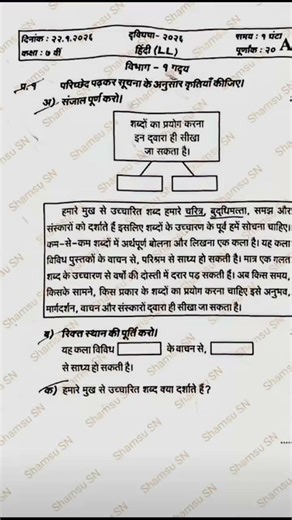 दिनांक : २२.९.२०२६ द्विघपा - २०२६ समय : १ घंटा
कक्षा : ७ वीं हिंदी (L.L) पूर्णांक : २० A
विभाग - १ गद्य
प्र.१ परिच्छेद पढ़कर सूचना के अनुसार कृतियाँ कीजिए।
अ) संजाल पूर्ण करो।
शब्दों का प्रयोग करना
इन द्वारा ही सीखा
जा सकता है।
हमारे मुख से उच्चारित शब्द हमारे चरित्र, बुद्धिमत्ता, समझ और
संस्कारों को दर्शाते हैं इसलिए शब्दों के उच्चारण के पूर्व हमें सोचना चाहिए।
कम-से-कम शब्दों में अर्थपूर्ण बोलना और लिखना एक कला है। यह कला
विविध पुस्तकों के वाचन से, परिश्रम से साध्य हो सकती है। मात्र एक गलत
शब्द के उच्चारण से वर्षों की दोस्ती में दरार पड़ सकती है। अब किस समय,
किसके सामने, किस प्रकार के शब्दों का प्रयोग करना चाहिए इसे अनुभव,
मार्गदर्शन, वाचन और संस्कारों द्वारा ही सीखा जा सकता है।
ब) रिक्त स्थान की पूर्ति करो।
यह कला विविध के वाचन से,
से साध्य हो सकती है।
क) हमारे मुख से उच्चारित शब्द क्या दर्शाते हैं?
Shamsu SN